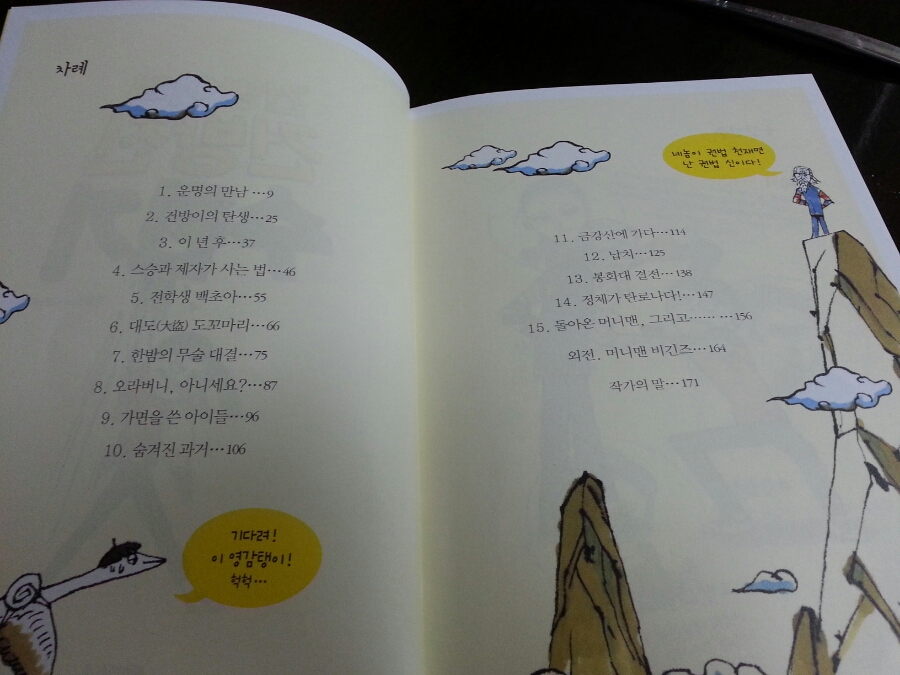 차례
1. 운명의 만남 …9
2. 건방이의 탄생…25
3. 이 년 후…37
4. 스승과 제자가 사는 법…46
5. 전학생 백초아…55
6. 대도(大盜) 도꼬마리…66
7. 한밤의 무술 대결…75
8. 오라버니, 아니세요?…87
9. 가면을 쓴 아이들…96
10. 숨겨진 과거…106
기다려!
이 영감탱이!
헉헉…
네놈이 권법 천재면
난 권법 신이다!
11. 금강산에 가다…114
12. 납치…125
13. 봉희대 결선…138
14. 정체가 탄로나다!…147
15. 돌아온 머니맨, 그리고…… …156
외전. 머니맨 비긴즈…164
작가의 말…171